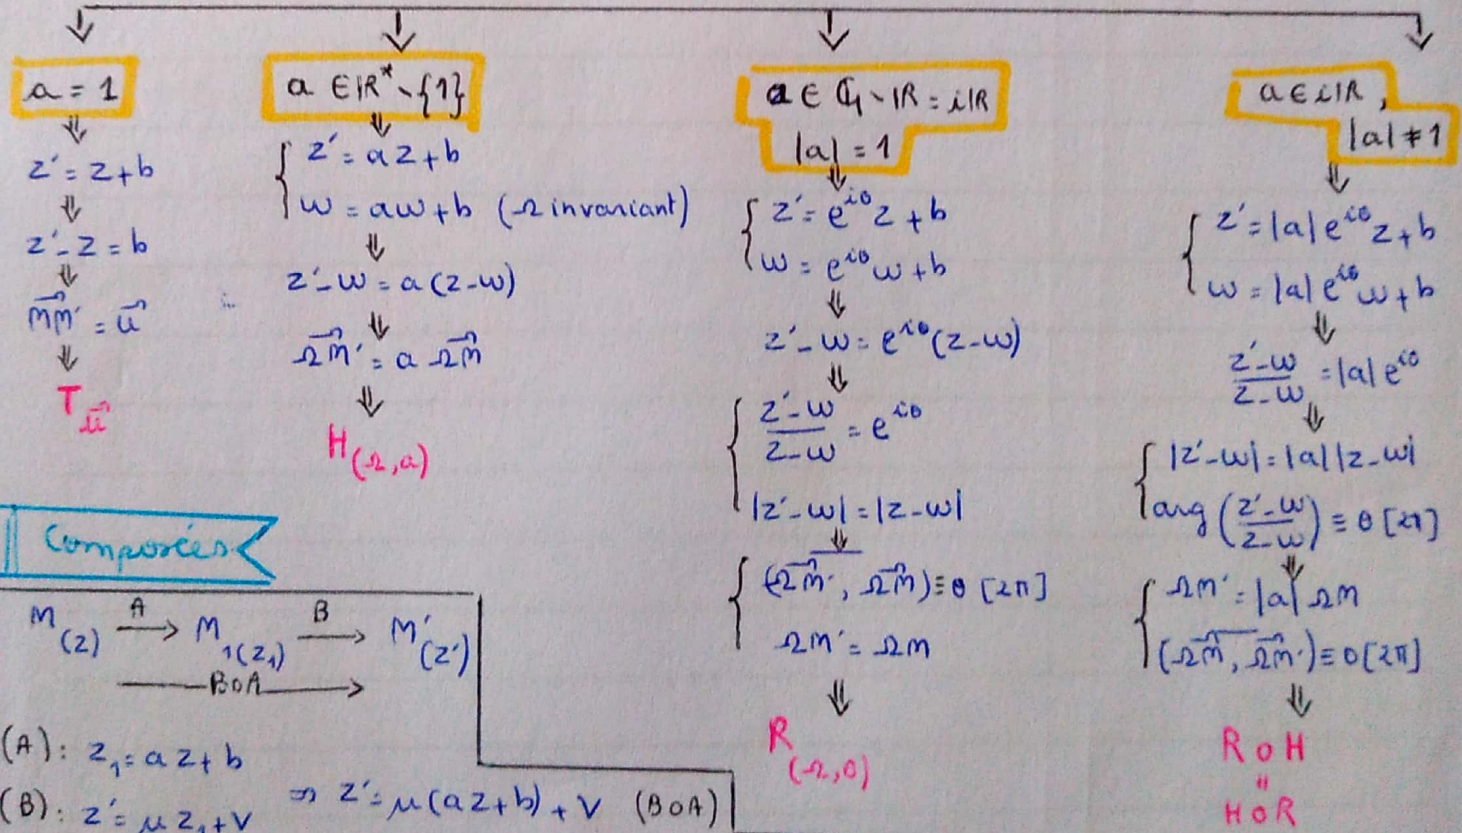 a = 1
z' = z + b
z' - z = b
MM' = u
T u
a ∈ ℝ* \ {1}
z' = az + b
w = aw + b (Ω invariant)
z' - w = a(z - w)
ΩM' = a ΩM
H(Ω,a)
a ∈ ℂ \ ℝ = iℝ
|a| = 1
z' = e^iθ z + b
w = e^iθ w + b
z' - w = e^iθ (z - w)
z' - w / z - w = e^iθ
|z' - w| = |z - w|
(ΩM', ΩM) ≡ θ [2π]
ΩM' = ΩM
R(Ω,θ)
a ∈ iℝ,
|a| ≠ 1
z' = |a| e^iθ z + b
w = |a| e^iθ w + b
z' - w / z - w = |a| e^iθ
|z' - w| = |a| |z - w|
arg (z' - w / z - w) ≡ θ [2π]
ΩM' = |a| ΩM
(ΩM, ΩM') ≡ θ [2π]
R o H
=
H o R
Composées
M(z) A→ M1(z1) B→ M'(z')
BoA
(A): z1 = az + b
(B): z' = μ z1 + v ⇒ z' = μ(az + b) + v (BoA)